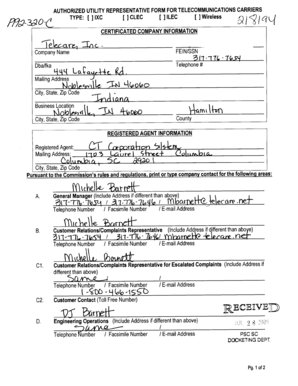 AUTHORIZED UTILITY REPRESENTATIVE FORM FOR TELECOMMUNICATIONS CARRIERS
TYPE: [ ] IXC [ ] CLEC [ ] ILEC [ ] Wireless
218194
CERTIFICATED COMPANY INFORMATION
Telecare, Inc.
Company Name FEIN/SSN
317-776-7654
Dba/fka Telephone #
444 Lafayette Rd.
Mailing Address
Noblesville, IN 46060
City, State, Zip Code
Indiana
Business Location
Noblesville, IN 46060 Hamilton
City, State, Zip Code County
REGISTERED AGENT INFORMATION
Registered Agent: CT Corporation System
Mailing Address: 1703 Laurel Street Columbia
Columbia, SC 29201
City, State, Zip Code
Pursuant to the Commission's rules and regulations, print or type company contact for the following areas:
Michelle Barrett
A. General Manager (Include Address if different than above)
317-776-7654 / 317-776-7646 / mbarnett@telecare.net
Telephone Number / Facsimile Number / E-mail Address
Michelle Barnett
B. Customer Relations/Complaints Representative (Include Address if different than above)
317-776-7654 / 317-776-7646 / mbarnett@telecare.net
Telephone Number / Facsimile Number / E-mail Address
Michelle Barnett
C1. Customer Relations/Complaints Representative for Escalated Complaints (Include Address if
different than above)
Same
Telephone Number / Facsimile Number / E-mail Address
1-800-466-1550
C2. Customer Contact (Toll Free Number)
DJ Barnett
RECEIVED
D. Engineering Operations (Include Address if different than above)
Same
JUL 28
Telephone Number / Facsimile Number / E-mail Address
PSC SC
DOCKETING DEPT
Pg. 1 of 2